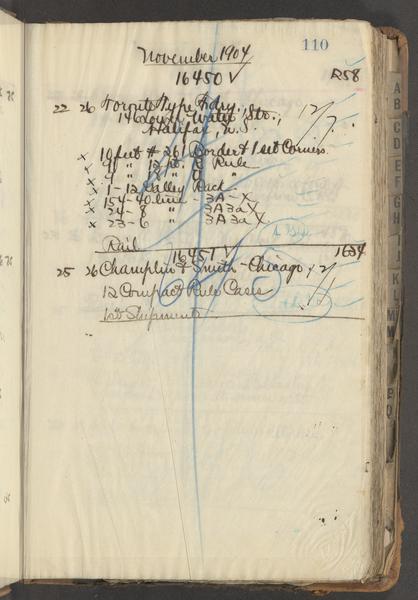 110
November 1904
16450 √ R58
22 26 Toronto Type Fdry.,
146 Water Str.,
Halifax, N.S.
x 10 feet # 261 Border & 1 set Corners
x 4 " 12 pt. Rule
x 4 " " "
x 1-12 Galley Rack
x 154-40 line - 3A-X
x 24-8 " 3A3a X
x 23-6 " 3A3a X
Rail
16451 √ 1634
25 26 Champlin & Smith - Chicago
12 Compact Rule Cases
1st Shipment
A
B
C
D
E
F
G
H
I
J
K
L
M